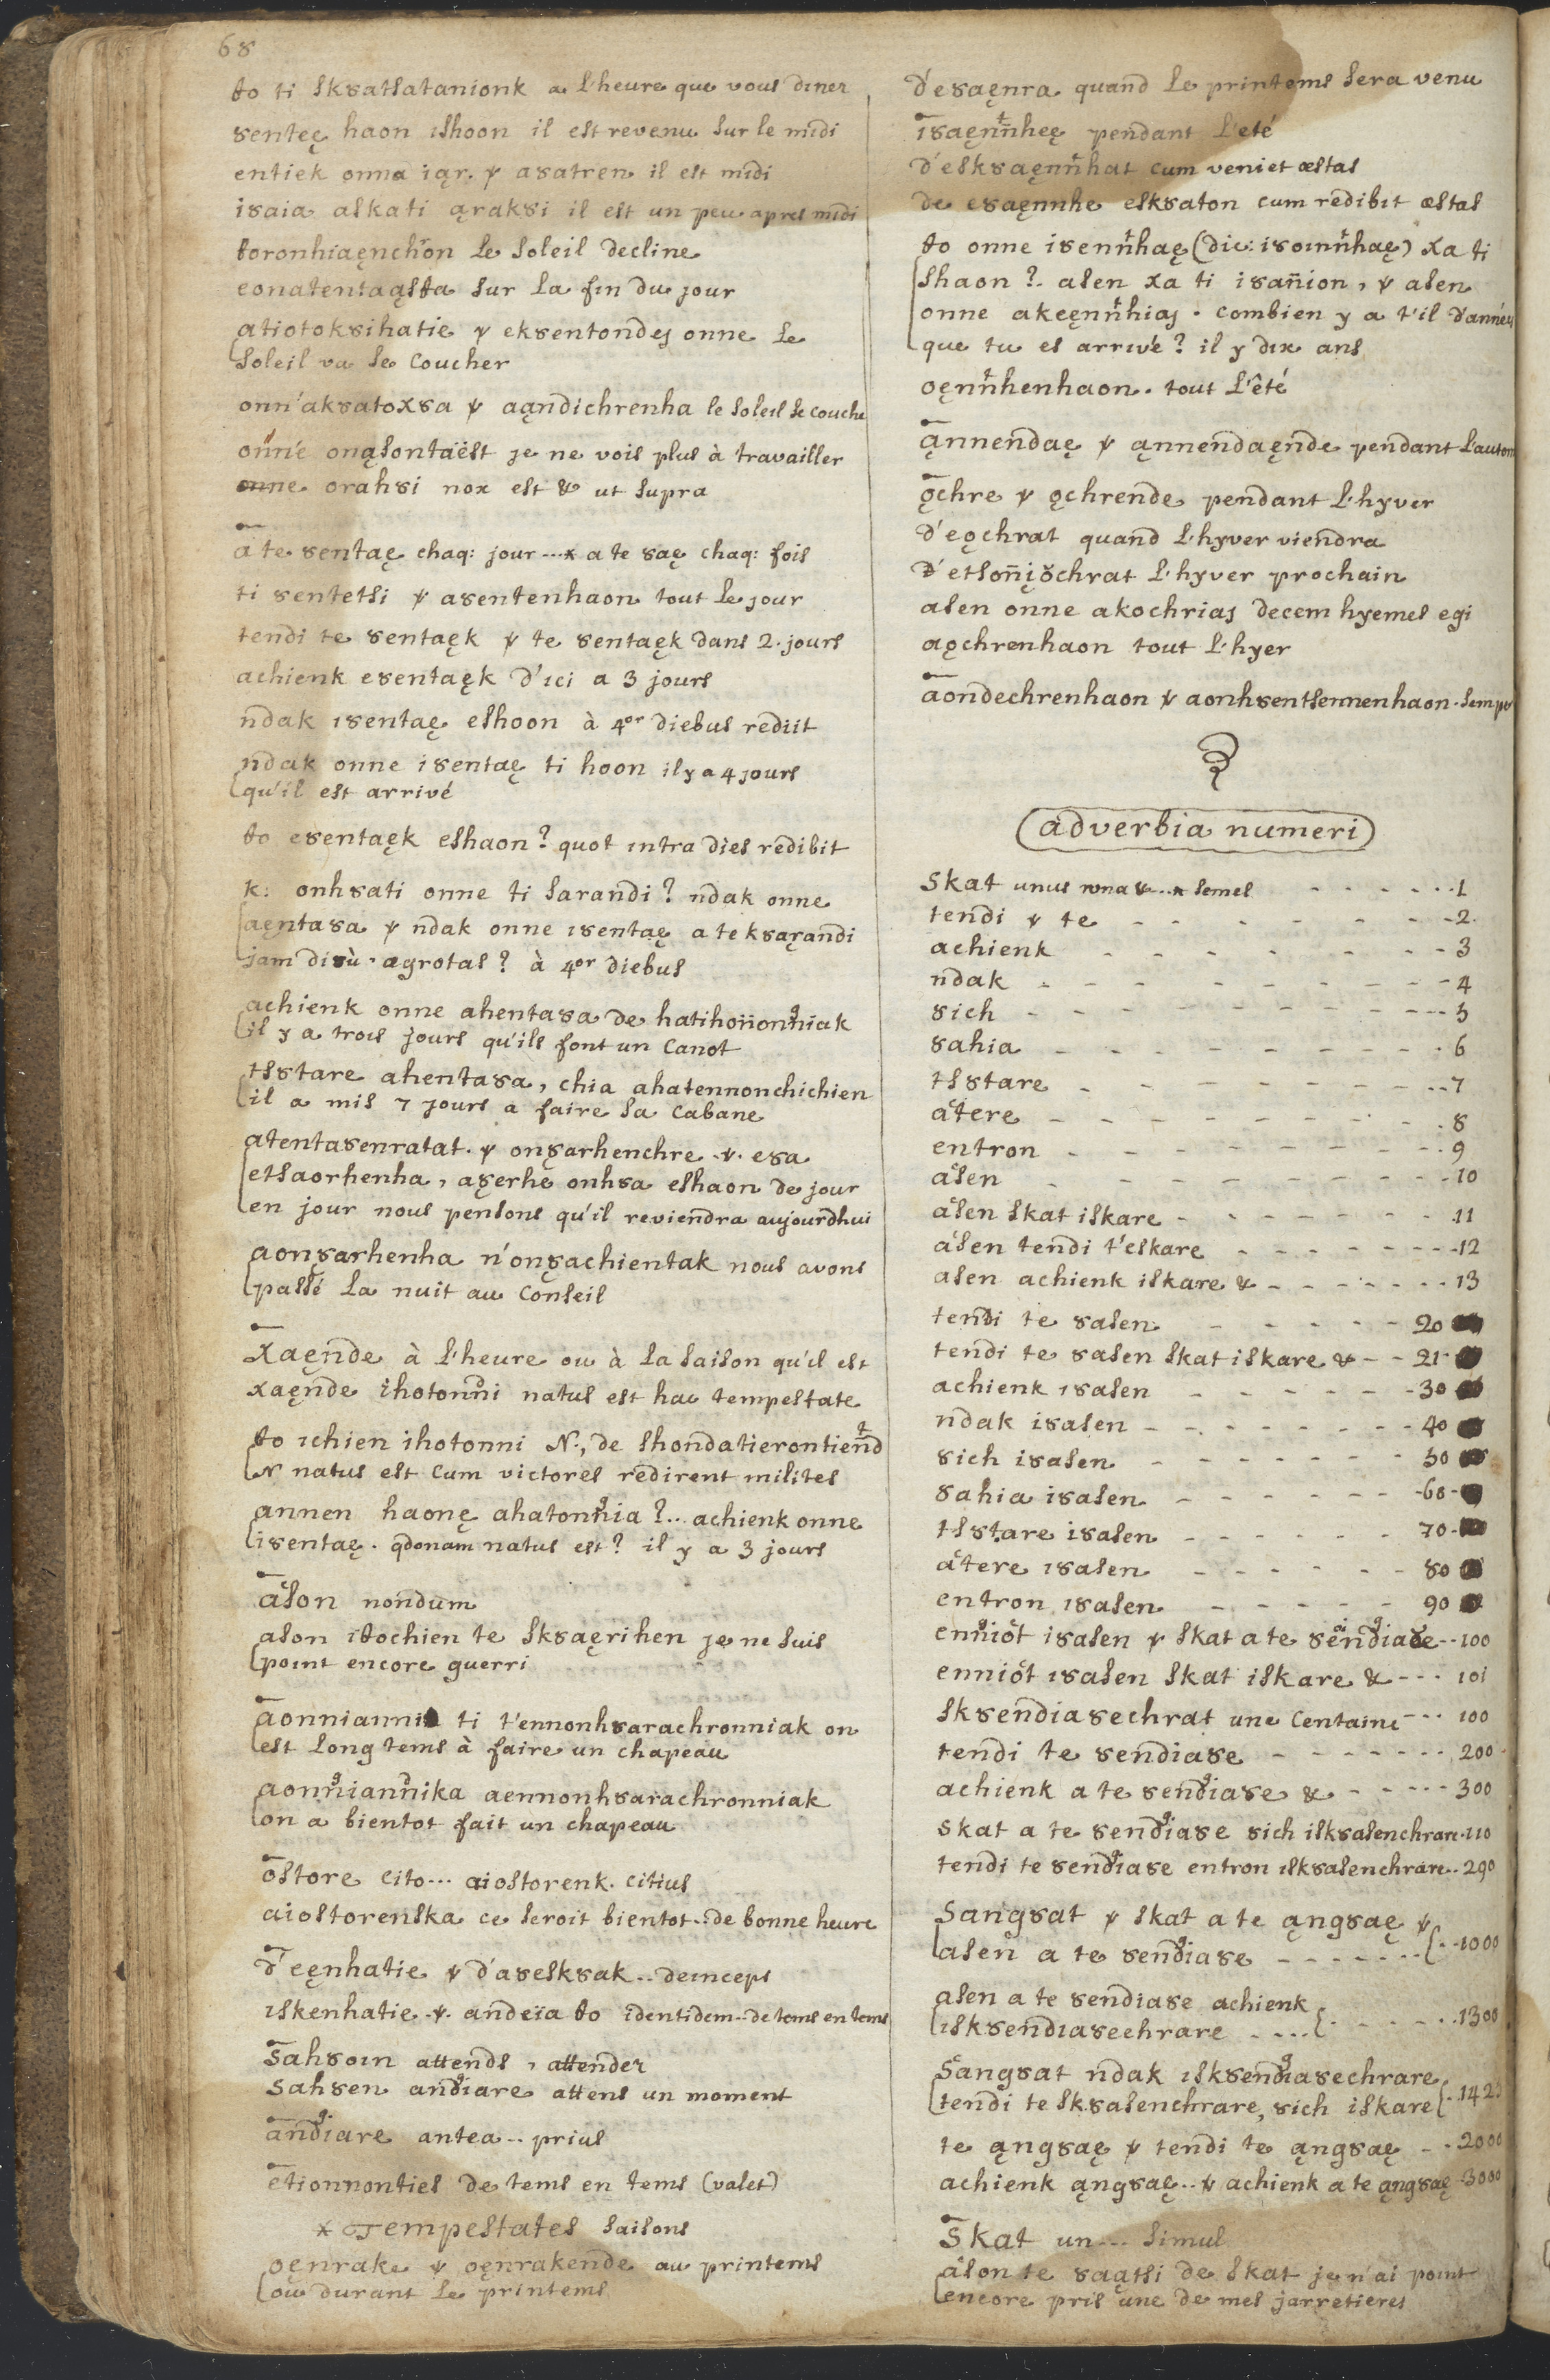 68
to ti skȣatsatanionk a l'heure que vous diner
ȣenteę haon ishoon il est revenu sur le midi
entiek onna iąr. ұ aȣatren il est midi
iȣaia askati ąrakȣi il est un peu apres midi
toronhiaęnch'on le soleil decline
eonatentaąsta sur la fin du jour
atiotokȣihatie ұ ekȣentondes onne le
soleil va se coucher
onn'akȣatoxȣa ұ aąndichrenha le soleil se couche
onn'e onąsontaëst je ne vois plus à travailler
onne orahȣi nox est & ut supra
a te ȣentaę chaq: jour ...x a te ȣaę chaq: fois
ti ȣentetsi ұ aȣentenhaon tout le jour
tendi te ȣentaęk ұ te ȣentaęk dans 2. jours
achienk eȣentaęk d'ici a 3 jours
ndak iȣentaę eshoon à 4or diebus rediit
ndak onne iȣentaę ti hoon il y a 4 jours
qu'il est arrivé
to eȣentaęk eshaon? quot intra dies redibit
k: onhȣati onne ti sarandi? ndak onne
aęntaȣa ұ ndak onne iȣentaę a te kȣaŗandi
jam diù ægrotas? à 4or diebus
achienk onne ahentaȣa de hatihonnonniak
il y a trois jours qu'ils font un canot
tsȣtare ahentaȣa, chia ahatennonchichien
il a mis 7 jours a faire sa cabane
atentaȣenratat. ұ onȣarhenchre .ұ. eȣa
etsaorhenha, aȣerhe onhȣa eshaon de jour
en jour nous pensons qu'il reviendra aujourdhui
aonȣarhenha n'onȣachientak nous avons
passé la nuit au conseil
xaęnde à l'heure ou à la saison qu'il est
xaęnde ihotonni natus est hac tempestate
to ichien ihotonni N., de shondatierontiend
N natus est cum victores redirent milites
annen haonę ahatonnia?.. achienk onne
iȣentaę. qdonam natus est? il y a 3 jours
ason nondum
ason itochien te skȣaęrihen je ne suis
point encore guerri
aonnianni ti t'ennonhȣarachronniak on
est long tems à faire un chapeau
aonniannika aennonhȣarachronniak
on a bientot fait un chapeau
ostore cito... aiostorenk. citius
aiostorenska ce seroit bientot.. de bonne heure
d'eęnhatie ұ d'aȣeskȣak.. deinceps
iskenhatie .ұ. andeia to identidem.. de tems en tems
sahȣoin attends, attender
sahȣen andiare attens un moment
andiare antea.. prius
etionnonties de tems en tems (valet)
x Tempestates saisons
oęnrake ұ oęnrakende au printems
ou durant le printems
d'eȣaęnra quand le printems sera venu
iȣaęnnheę pendant l'eté
d'eskȣaęnnhat cum veniet æstas
de eȣaęnnhe eskȣaton cum redibit æstas
to onne iȣennhaę (dic: iȣoinnhaę) xa ti
shaon?. asen xa ti iȣannion, ұ asen
onne akeęnnhias. combien y a t'il d'années
que tu es arrivé? il y dix ans
oęnnhenhaon. tout l'êté
ąnnendaę ұ ąnnendaęnde pendant l'autom
ǫchre ұ ǫchrende pendant l'hyver
d'eǫchrat quand l'hyver viendra
d'etsonniǫchrat l'hyver prochain
asen onne akochrias decem hyemes egi
aǫchrenhaon tout l'hyer
aondechrenhaon ұ aonhȣentsennenhaon. semper
adverbia numeri
Skat unus una &...x semel - - - 1
tendi ұ te - - - 2.
achienk - - - 3
ndak - - - 4
ȣich - - - 5
ȣahia - - - 6
tsȣtare - - - 7
atere - - - 8
entron - - - 9
asen - - - 10
asen skat iskare - - - 11
asen tendi t'eskare - - - 12
asen achienk iskare & - - - 13
tendi te ȣasen - - - 20
tendi te ȣasen skat iskare & - - 21
achienk iȣasen - - - 30
ndak iȣasen - - - 40
ȣich iȣasen - - - 50
ȣahia iȣasen - - - 60
tsȣtare iȣasen - - - 70
atere iȣasen - - - 80
entron iȣasen - - - 90
enniot iȣasen ұ skat a te ȣendiaȣe .. 100
enniot iȣasen skat iskare & - - - 101
skȣendiaȣechrat une centaine - - - 100
tendi te ȣendiaȣe - - - 200
achienk a te ȣendiaȣe & - - - 300
skat a te ȣendiaȣe ȣich iskȣasenchrare. 110
tendi te ȣendiaȣe entron iskȣasenchrare.. 290
Sangȣat ұ skat a te ąngȣaę ұ
asen a te ȣendiaȣe - - - 1000
asen a te ȣendiaȣe achienk
iskȣendiaȣechrare - - - 1300
Sangȣat ndak iskȣendiaȣechrare
tendi te skȣasenchrare, ȣich iskare 1425
te ąngȣaę ұ tendi te ąngȣaę - - 2000
achienk ąngȣaę.. ұ achienk a te ąngȣaę 3000
Skat un... simul
ason te ȣaątsi de skat je n'ai point
encore pris une de mes jarretieres